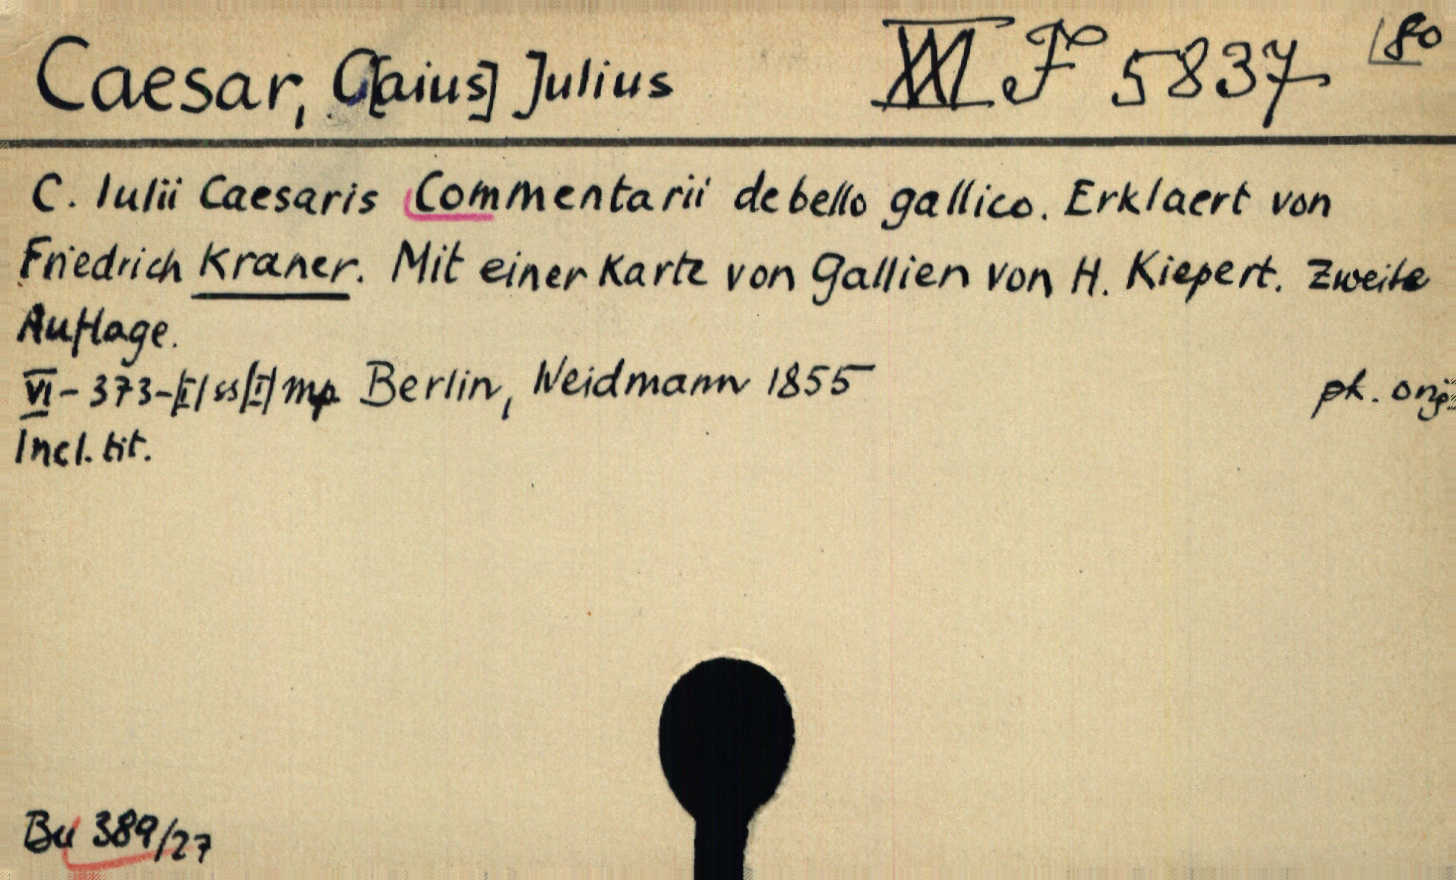 Caesar, C[aius] Julius XXI F 5837 80
C. Iulii Caesaris Commentarii de bello gallico. Erklaert von
Friedrich Kraner. Mit einer Karte von Gallien von H. Kiepert. Zweite
Auflage.
VI-373-[I] ss [I] mp Berlin, Weidmann 1855 pk. orig.
Incl. tit.
Bu 389/27